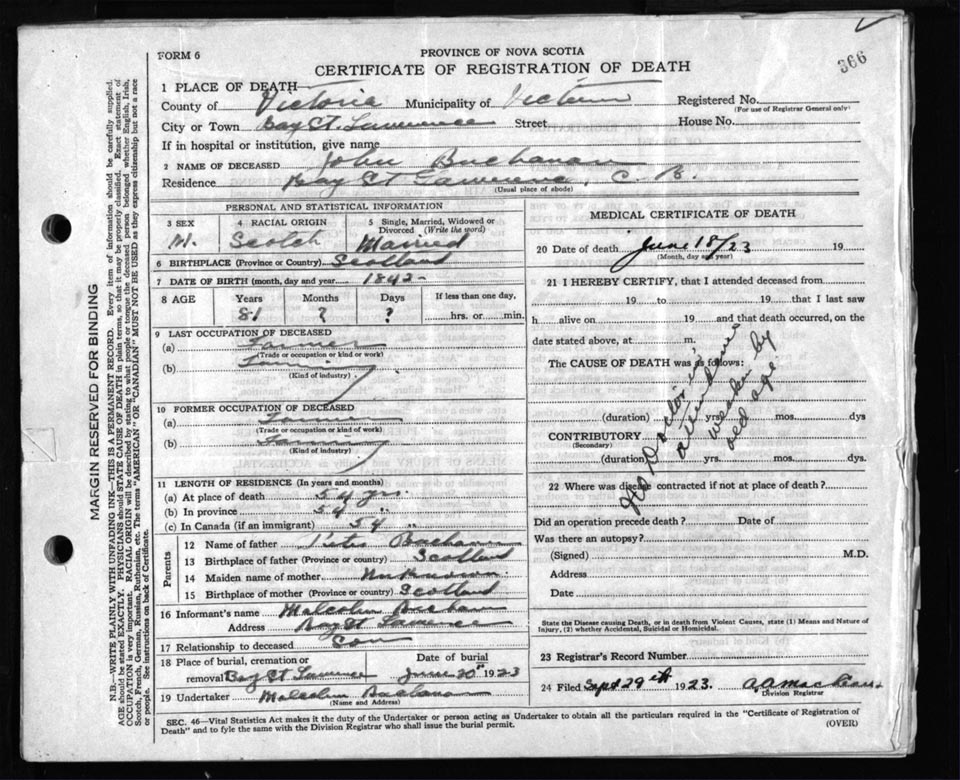 366
FORM 6
PROVINCE OF NOVA SCOTIA
CERTIFICATE OF REGISTRATION OF DEATH
1 PLACE OF DEATH
County of Victoria Municipality of Victoria Registered No.
(For use of Registrar General only)
City or Town Bay St. Lawrence Street House No.
If in hospital or institution, give name
2 NAME OF DECEASED John Buchanan
Residence Bay St Lawrence, C. B.
(Usual place of abode)
PERSONAL AND STATISTICAL INFORMATION
3 SEX 4 RACIAL ORIGIN 5 Single, Married, Widowed or Divorced (Write the word)
M. Scotch Married
6 BIRTHPLACE (Province or Country) Scotland
7 DATE OF BIRTH (month, day and year) 1842-
8 AGE Years Months Days If less than one day,
81 ? ? hrs. or min.
9 LAST OCCUPATION OF DECEASED
(a) Farmer
(Trade or occupation or kind or work)
(b) Farming
(Kind of industry)
10 FORMER OCCUPATION OF DECEASED
(a) Farmer
(Trade or occupation or kind of work)
(b) Farming
(Kind of industry)
11 LENGTH OF RESIDENCE (In years and months)
(a) At place of death 54 yrs.
(b) In province 54 "
(c) In Canada (if an immigrant) 54 "
Parents
12 Name of father Peter Buchanan
13 Birthplace of father (Province or country) Scotland
14 Maiden name of mother Unknown
15 Birthplace of mother (Province or country) Scotland
16 Informant's name Malcolm Buchanan
Address Bay St Lawrence
17 Relationship to deceased Son
18 Place of burial, cremation or Date of burial
removal Bay St Lawrence June 20th 1923
19 Undertaker Malcolm Buchanan
(Name and Address)
MEDICAL CERTIFICATE OF DEATH
20 Date of death June 18/23 19
(Month, day and year)
21 I HEREBY CERTIFY, that I attended deceased from
19 to 19 that I last saw
h alive on 19 and that death occurred, on the
date stated above, at m.
The CAUSE OF DEATH was as follows:
No Doctor in
attendance
weaken by
old age
(duration) yrs. mos. dys
CONTRIBUTORY
(Secondary)
(duration) yrs. mos. dys.
22 Where was disease contracted if not at place of death?
Did an operation precede death? Date of
Was there an autopsy?
(Signed) M.D.
Address
Date
State the Disease causing Death, or in death from Violent Causes, state (1) Means and Nature of
Injury, (2) whether Accidental, Suicidal or Homicidal.
23 Registrar's Record Number
24 Filed Sept 29th 1923.
Division Registrar
SEC. 46—Vital Statistics Act makes it the duty of the Undertaker or person acting as Undertaker to obtain all the particulars required in the "Certificate of Registration of
Death" and to fyle the same with the Division Registrar who shall issue the burial permit.
(OVER)
MARGIN RESERVED FOR BINDING
N.B.—WRITE PLAINLY WITH UNFADING INK—THIS IS A PERMANENT RECORD. Every item of information should be carefully supplied.
AGE should be stated EXACTLY. PHYSICIANS should STATE CAUSE OF DEATH in plain terms, so that it may be properly classified. Exact statement of
OCCUPATION is very important. RACIAL ORIGIN will be described by stating to what people or tongue the deceased person belonged whether English, Irish,
Scotch, French, German, Russian, Ruthenian, etc. The terms "AMERICAN" or "CANADIAN" MUST NOT BE USED as they express citizenship but not a race
or people. See instructions on back of Certificate.